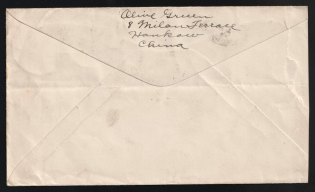 Olive Green
8 Milan Terrace
Hankow
China